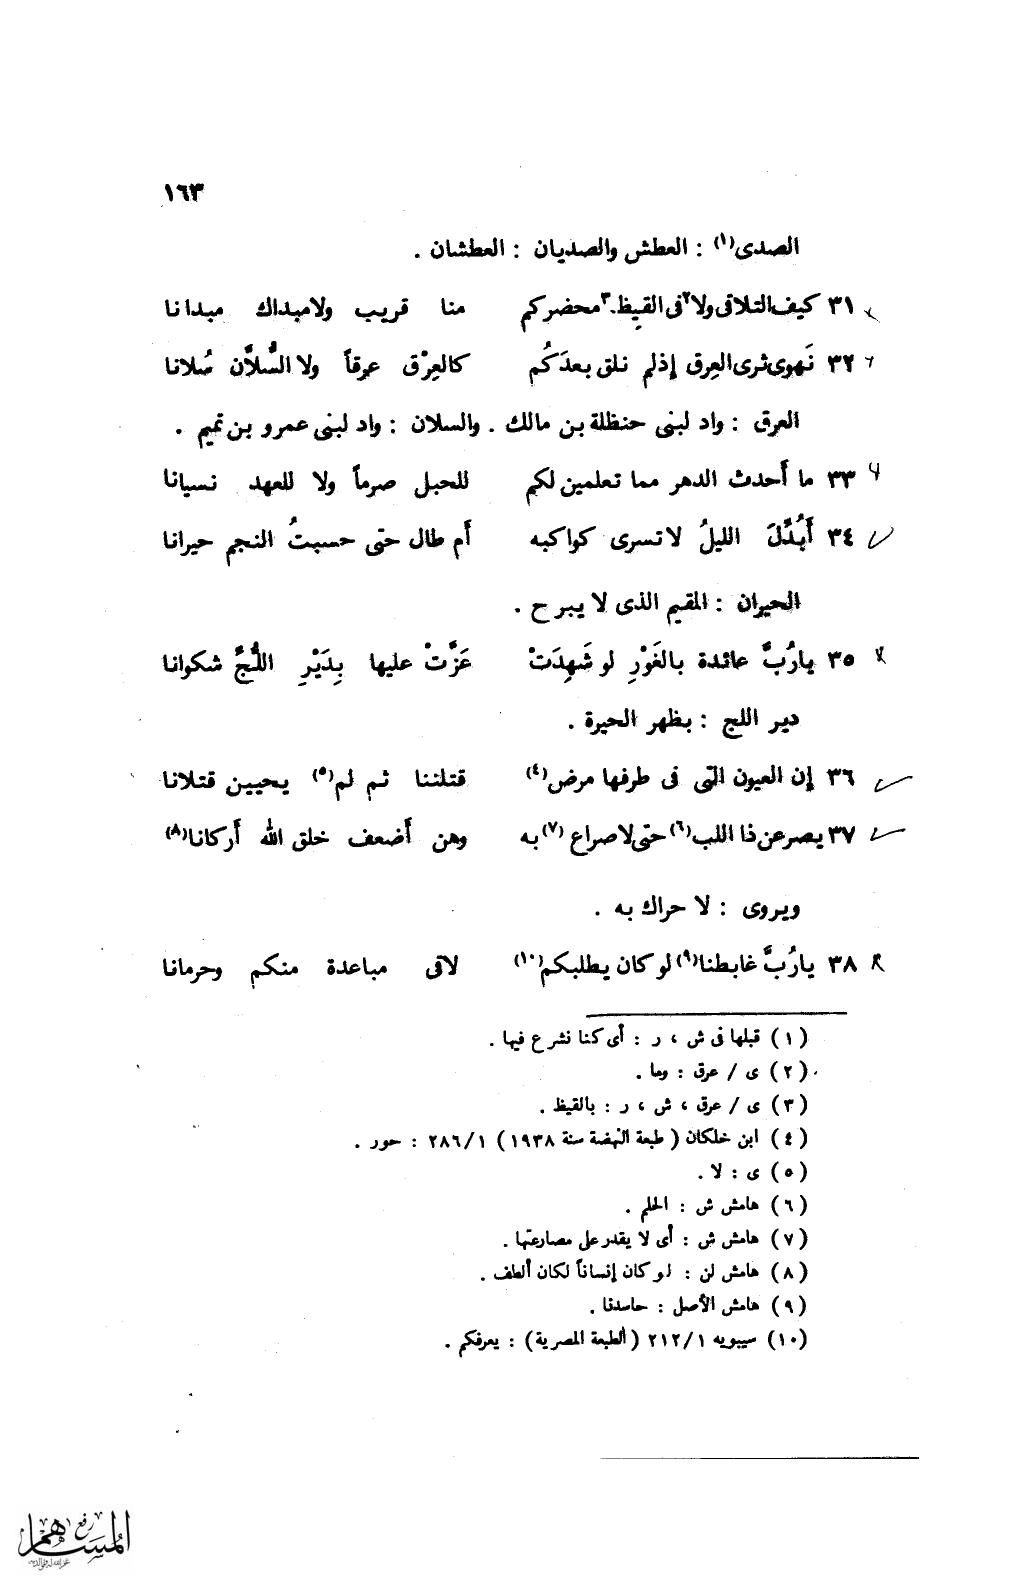 ١٦٣
الصدى(١) : العطش والصديان : العطشان .
٣١ كيف التلاقى ولا٢ فى القيظ٣ محضركم منا قريب ولا مبداك مبدانا
٣٢ نَهوى ثرى العِرق إذ لم نلق بعدَكُم كالعِرْق عرقاً ولا السُّلاَّن سُلانا
العرق : واد لبنى حنظلة بن مالك . والسلان : واد لبنى عمرو بن تميم .
٣٣ ما أَحدث الدهر مما تعلمين لكم للحبل صرماً ولا للعهد نسيانا
٣٤ أَبُدِّلَ الليلُ لا تسرى كواكبه أَم طال حتى حسبتُ النجم حيرانا
الحيران : المقيم الذى لا يبرح .
٣٥ يارُبَّ عائدة بالغَوْرِ لو شَهِدَتْ عَزَّتْ عليها بِدَيْرِ اللُّجِّ شكوانا
دير اللج : بظهر الحيرة .
٣٦ إن العيون التى فى طرفها مرض(٤) قتلننا ثم لم(٥) يحيين قتلانا
٣٧ يصرعن ذا اللب(٦) حتى لا صراع(٧) به وهن أَضعف خلق الله أَركانا(٨)
ويروى : لا حراك به .
٣٨ يارُبَّ غابطنا(٩) لو كان يطلبكم(١٠) لاقى مباعدة منكم وحرمانا
(١) قبلها فى ش ، ر : أى كنا نشرع فيها .
(٢) ى / عرق : وما .
(٣) ى / عرق ، ش ، ر : بالقيظ .
(٤) ابن خلكان ( طبعة النهضة سنة ١٩٣٨ ) ٢٨٦/١ : حور .
(٥) ى : لا .
(٦) هامش ش : الحلم .
(٧) هامش ش : أى لا يقدر على مصارعتها .
(٨) هامش لن : لو كان إنساناً لكان ألطف .
(٩) هامش الأصل : حاسدنا .
(١٠) سيبويه ٢١٢/١ (الطبعة المصرية) : يعرفكم .
رفع
المساهم